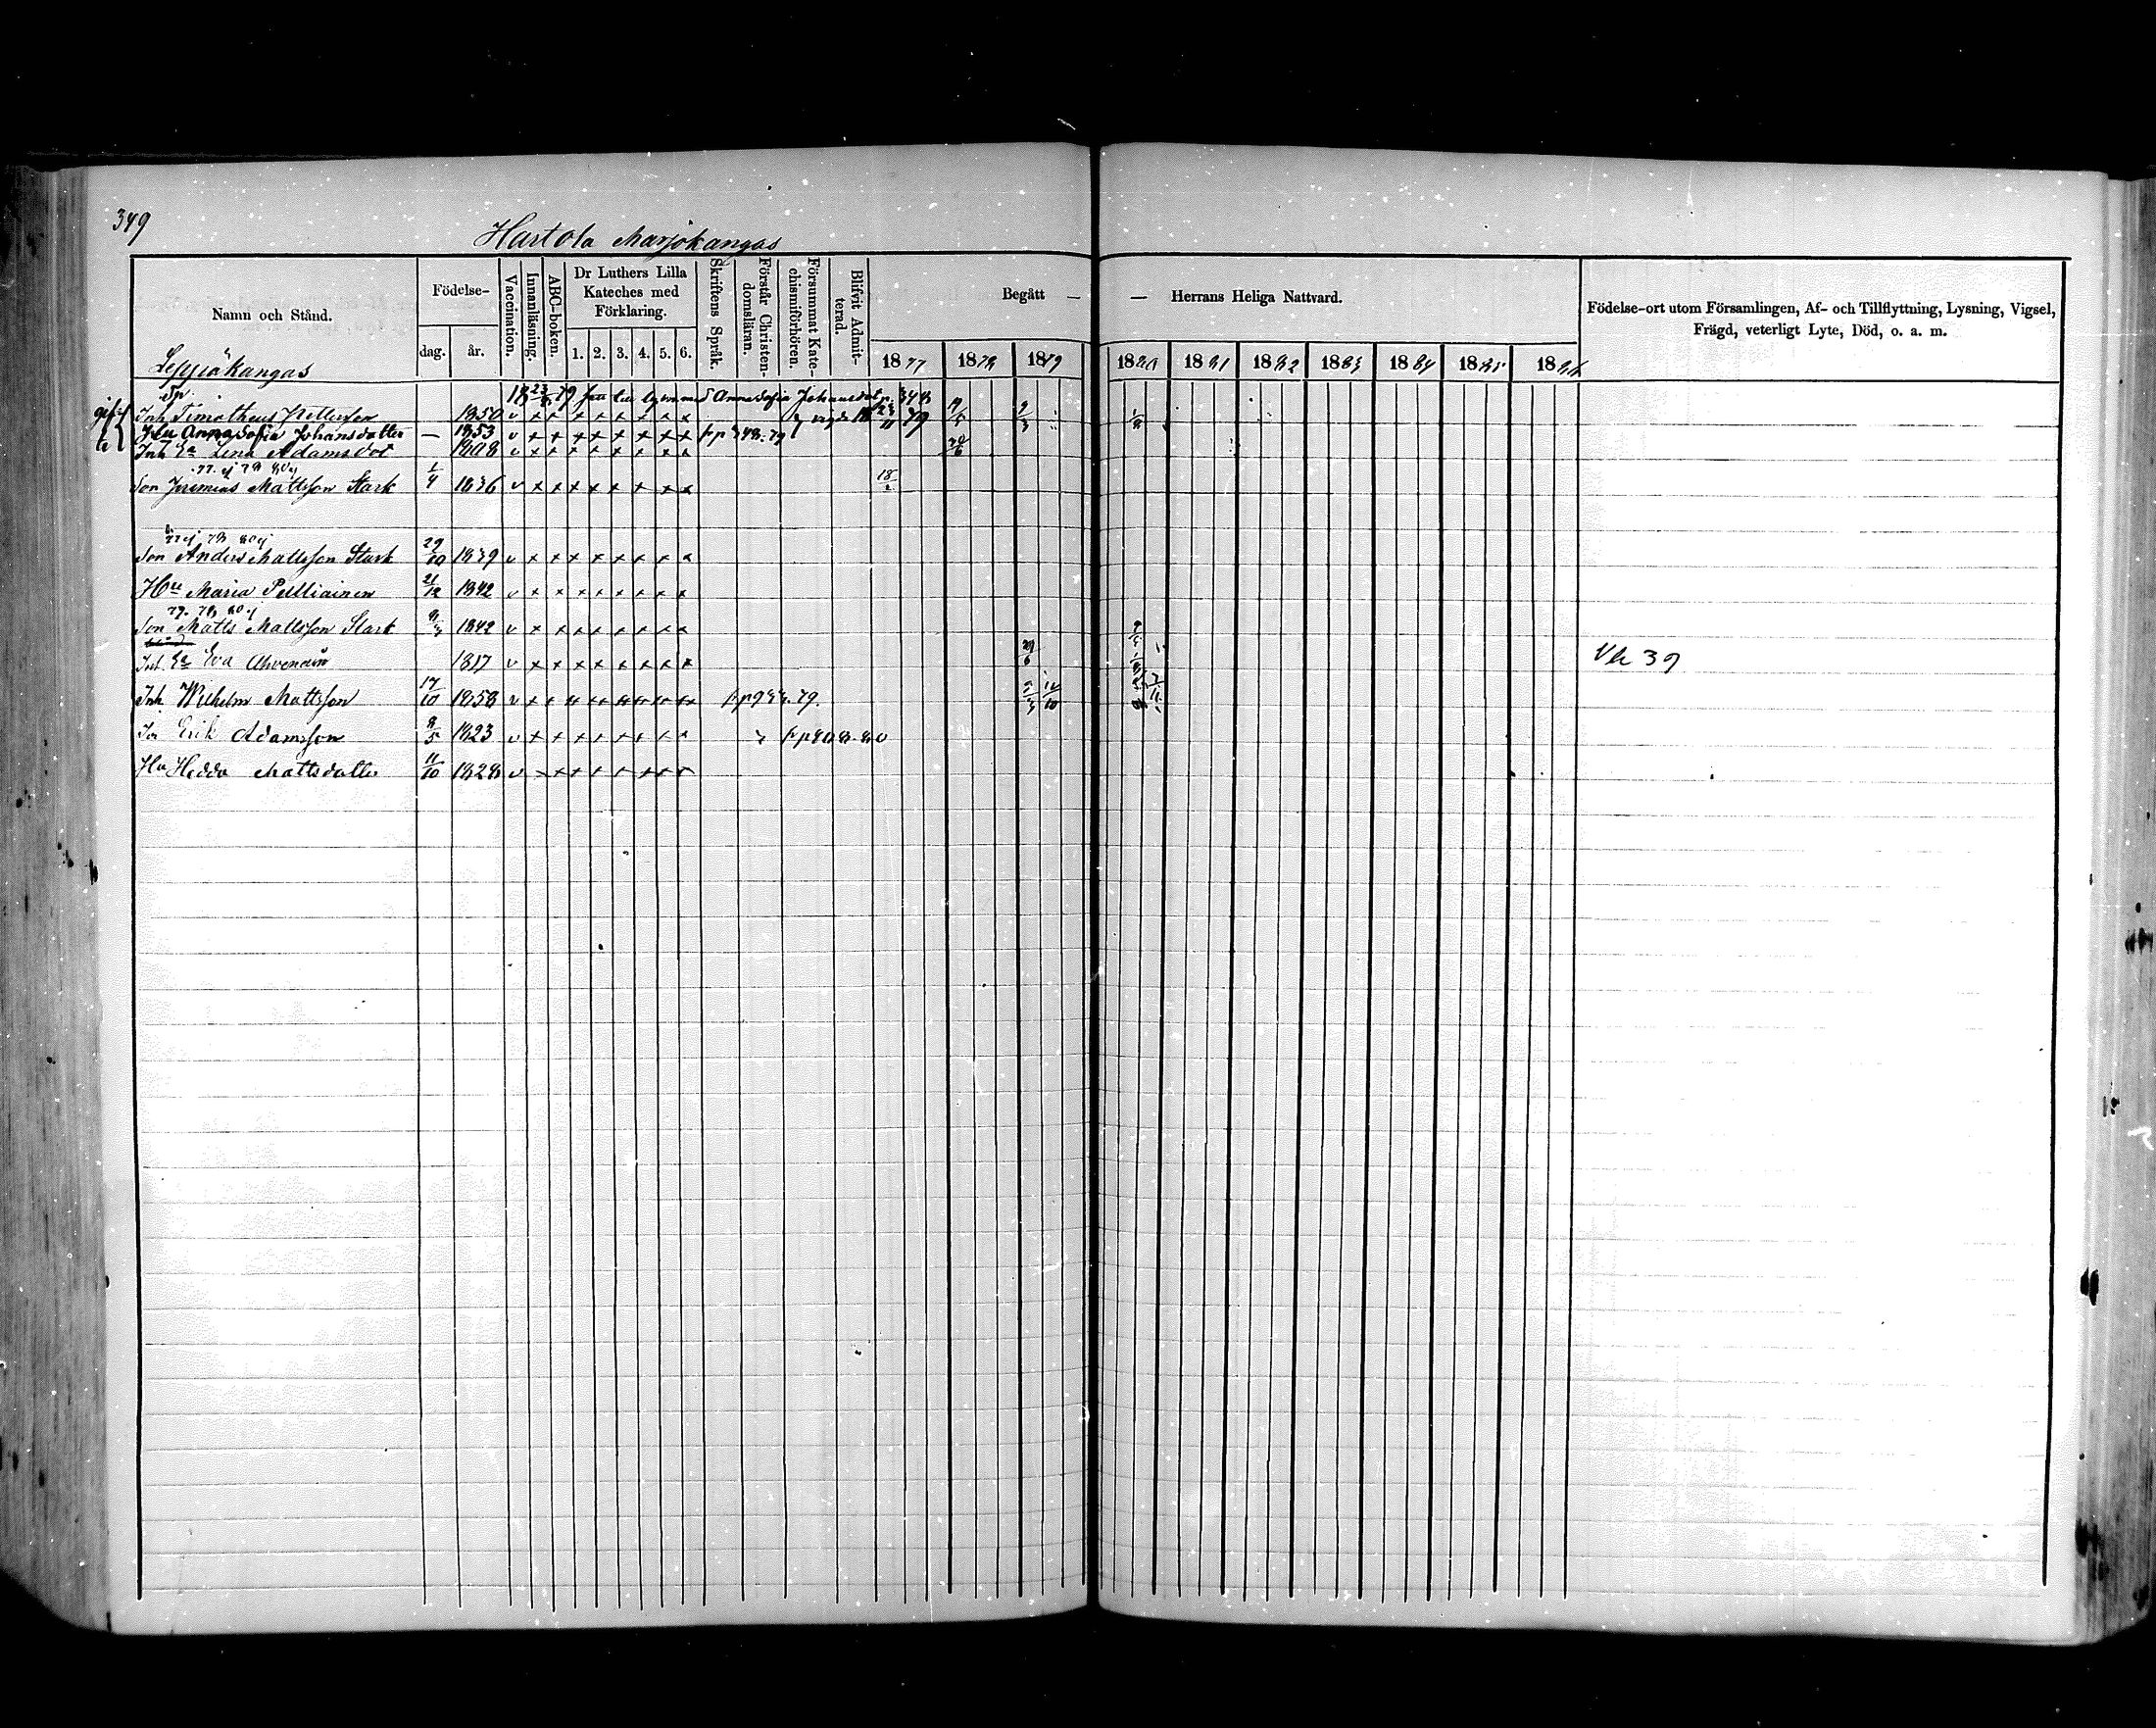 349
Hartola Marjokangas
Namn och Stånd.
Födelse-
dag.
år.
Vaccination.
Innanläsning.
ABC-boken.
Dr Luthers Lilla
Kateches med
Förklaring.
1. 2. 3. 4. 5. 6.
Skriftens Språk.
Förstår Christen-
domsläran.
Försummat Kate-
chismiförhören.
Blifvit Admit-
terad.
Begått — — Herrans Heliga Nattvard.
1877 1878 1879 1880 1881 1882 1883 1884 1885 1886
Födelse-ort utom Församlingen, Af- och Tillflyttning, Lysning, Vigsel,
Frägd, veterligt Lyte, Död, o. a. m.
Leppiäkangas
Inh Timotheus Pettersson 1850 v x x x x x x x x
Hu Anna Sofia Johansdotter — 1853 v x x x x x x x x
Inh Ea Lena Adamsdot 1808 v x x x x x x x x
Son Jeremias Mattsson Stark 1/4 1836 v x x x x x x x x
Son Anders Mattsson Stark 29/10 1839 v x x x x x x x x
Hu Maria Pelliainen 21/12 1842 v x x x x x x x x
Son Matts Mattsson Stark 1842 v x x x x x x x x
Inh Ea Eva Ahvenain 1817 v x x x x x x x x Vk 39
Inh Wilhelm Mattsson 17/10 1858 v x x x x x x x x
Erik Adamsson 8/5 1823 v x x x x x x x x
Hu Hedda Mattsdotter 11/10 1828 v x x x x x x x x